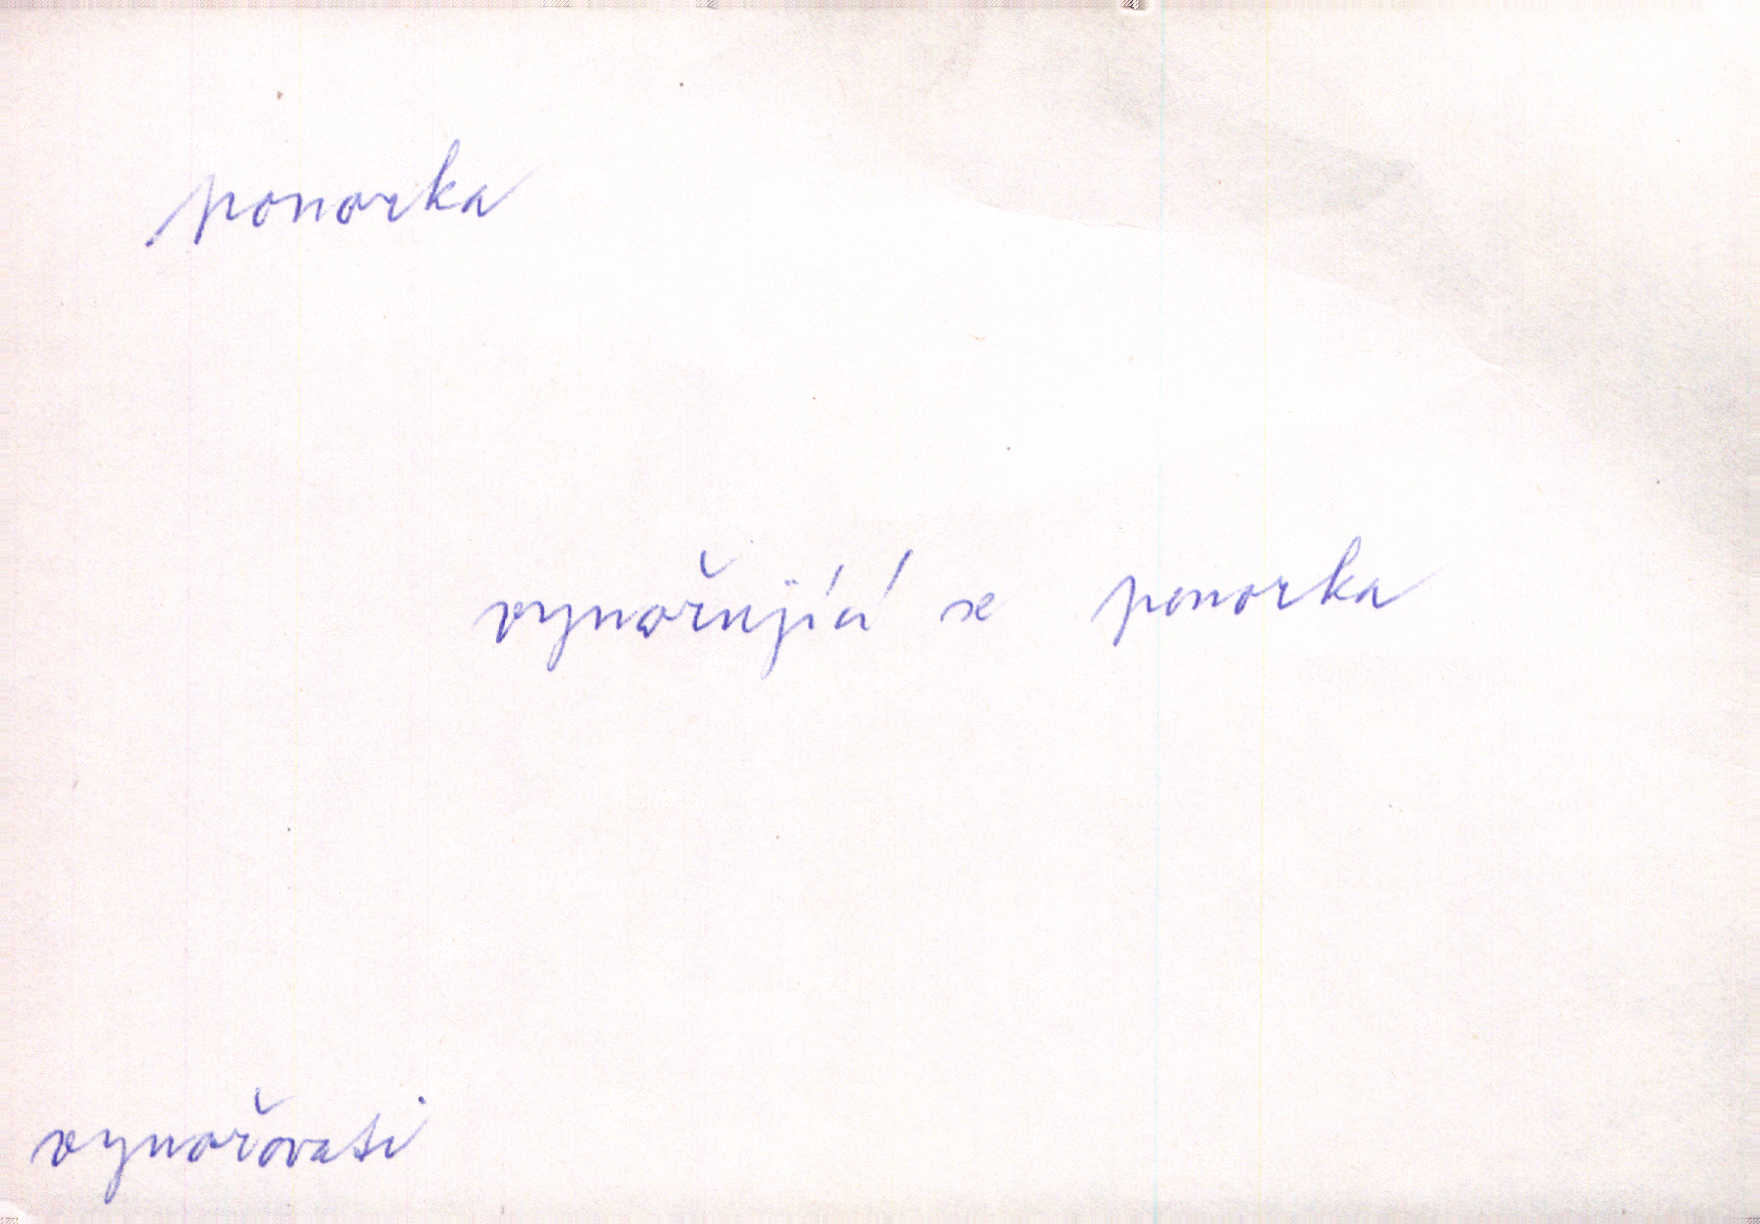 ponorka
vynořující se ponorka
vynořovati